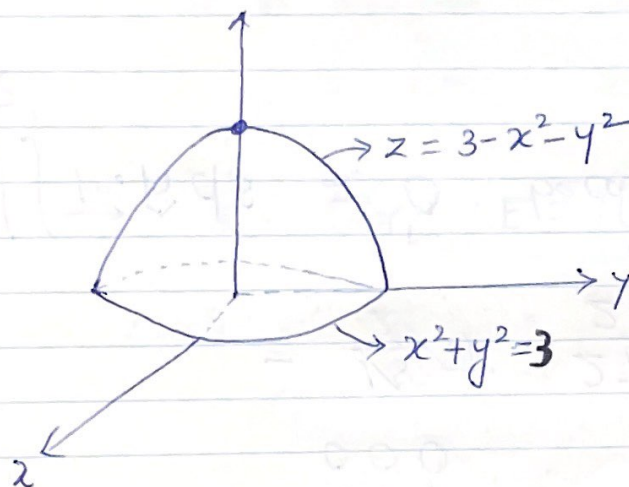 z = 3-x²-y²
y
x²+y²=3
x